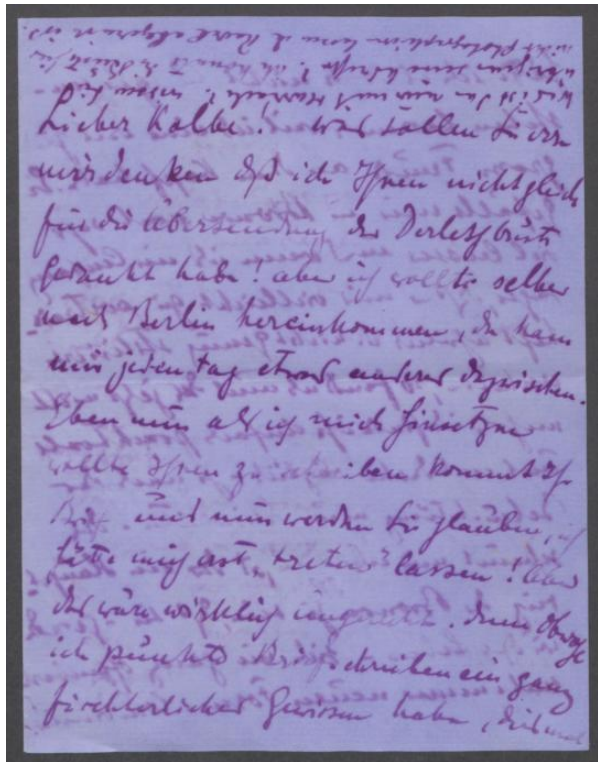 Lieber Kolbe! was sollen Sie von
mir denken daß ich Ihnen nicht gleich
für die Übersendung der Derlethbüste
gedankt habe! aber ich wollte selber
nach Berlin hereinkommen, da kam
mir jeden tag etwas anderes dazwischen.
Eben nun als ich mich hinsetzen
wollte Ihnen zu schreiben kommt Ihr
Brief und nun werden Sie glauben, ich
hätte mich erst „treten" lassen! Aber
das wäre wirklich ungerecht. denn obwohl
ich punkto Briefschreiben ein ganz
fürchterliches Gewissen habe, diesmal